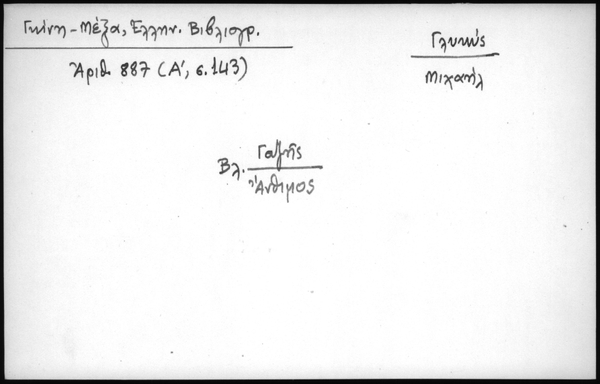 Γκίνη-Μέξα, Ἑλλην. Βιβλιογρ.
Ἀριθ. 887 (Α', σ. 143)
Γλυκύς
Μιχαήλ
Βλ. Γαζῆς
Ἄνθιμος